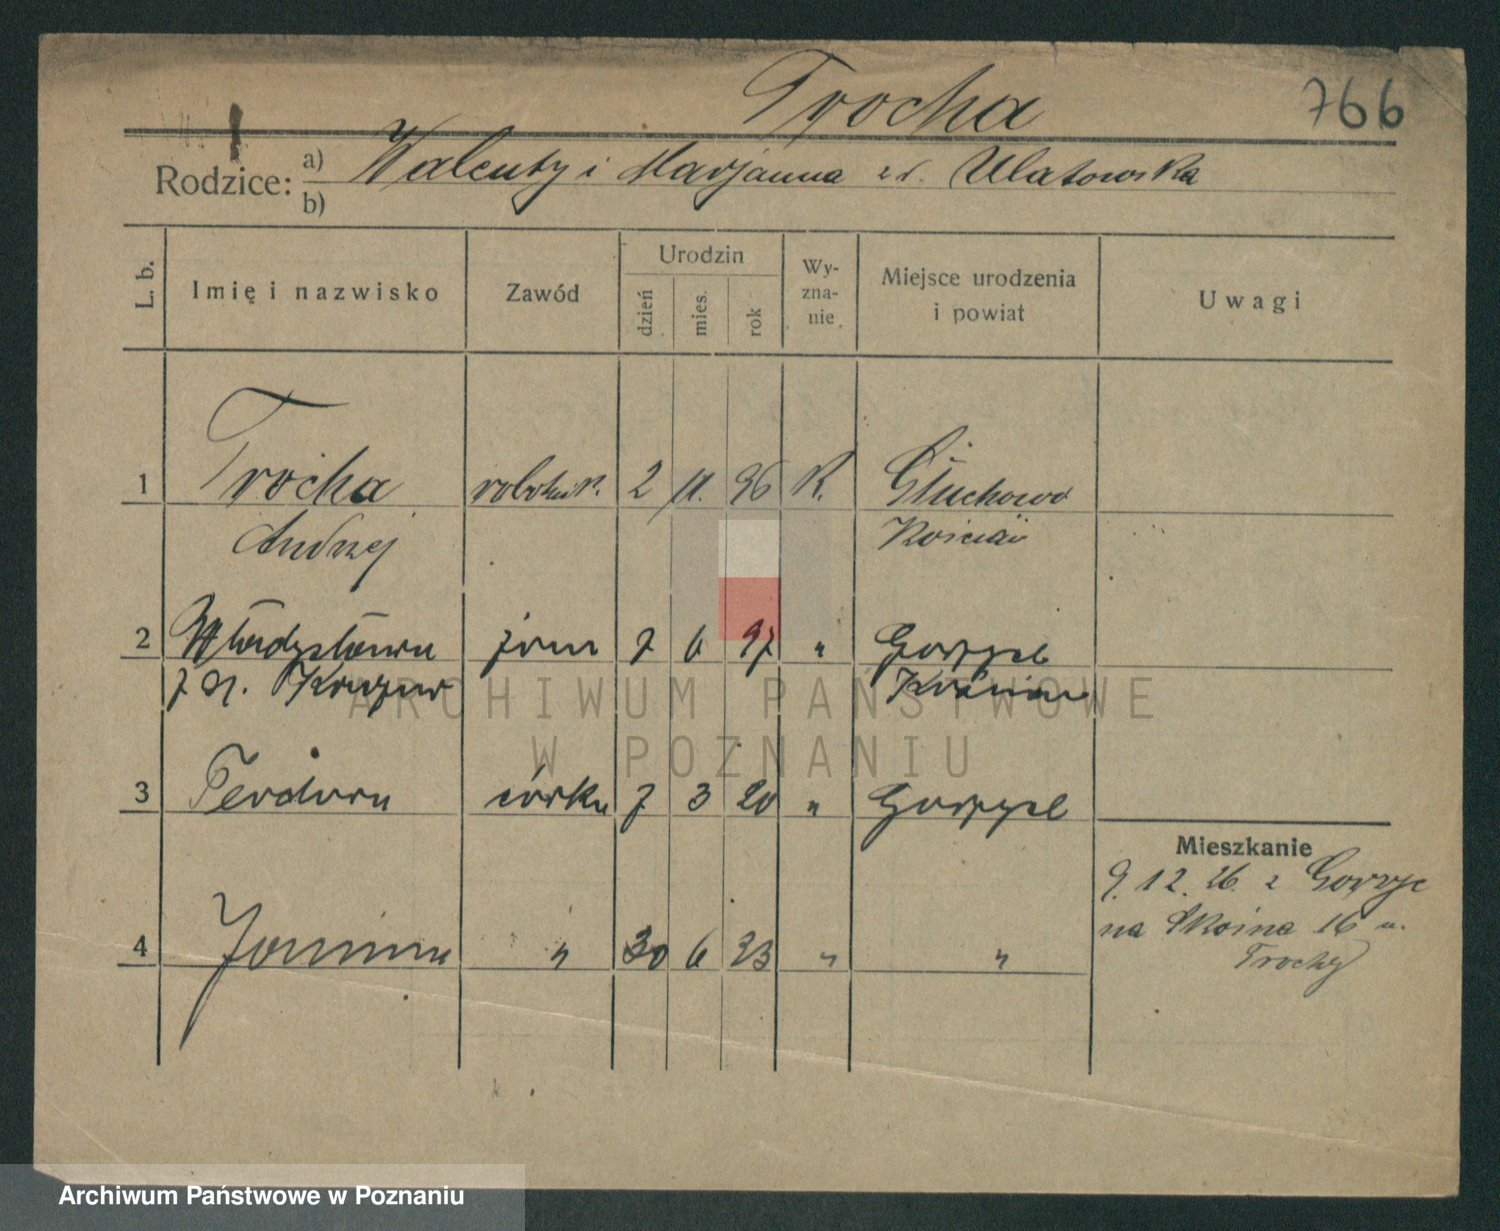 Trocha
766
Rodzice: a) Walenty i Marjanna zd. Ulatowska
b)
L. b.
Imię i nazwisko
Zawód
Urodzin
dzień
mies.
rok
Wy-
zna-
nie
Miejsce urodzenia
i powiat
Uwagi
1 Trocha robotnik. 2 11. 96 R. Głuchowo
Andrzej Kościan
2 Władysława żona 7 6 97 " Gorzyce
z d. Kościan
3 Teodora córka 7 3 20 " Gorzyce
4 Janina " 30 6 23 " "
Mieszkanie
9. 12. 26. z Gorzyc
na 16 u.
Trochy
ARCHIWUM PAŃSTWOWE
W POZNANIU
Archiwum Państwowe w Poznaniu